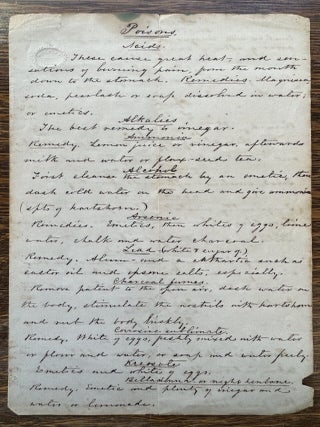 Poisons.
Acids.
These cause great heat, and sen-
sations of burning pain, from the mouth
down to the stomach. Remedies. Magnesia,
soda, pearlash or soap dissolved in water,
or emetics.
Alkalies
The best remedy is vinegar.
Ammonia
Remedy. Lemon juice or vinegar, afterwards
milk and water or flax-seed tea.
Alcohol
First cleanse the stomach by an emetic, then
dash cold water on the head and give ammonia
(spts of hartshorn.)
Arsenic
Remedies. Emetics, then whites of eggs, lime
water, chalk and water charcoal.
Lead (white & sugar of)
Remedy. Alum and a cathartic such as
castor oil and epsom salts, especially.
Charcoal fumes.
Remove patient to the open air, dash water on
the body, stimulate the nostrils with hartshorn
and rub the body briskly.
Corrosive sublimate.
Remedy. White of eggs, freshly mixed with water
or flour and water, or soap and water freely.
Kreosote
Emetics and whites of eggs.
Belladonna or night henbane.
Remedy. Emetic and plenty of vinegar and
water or lemonade.